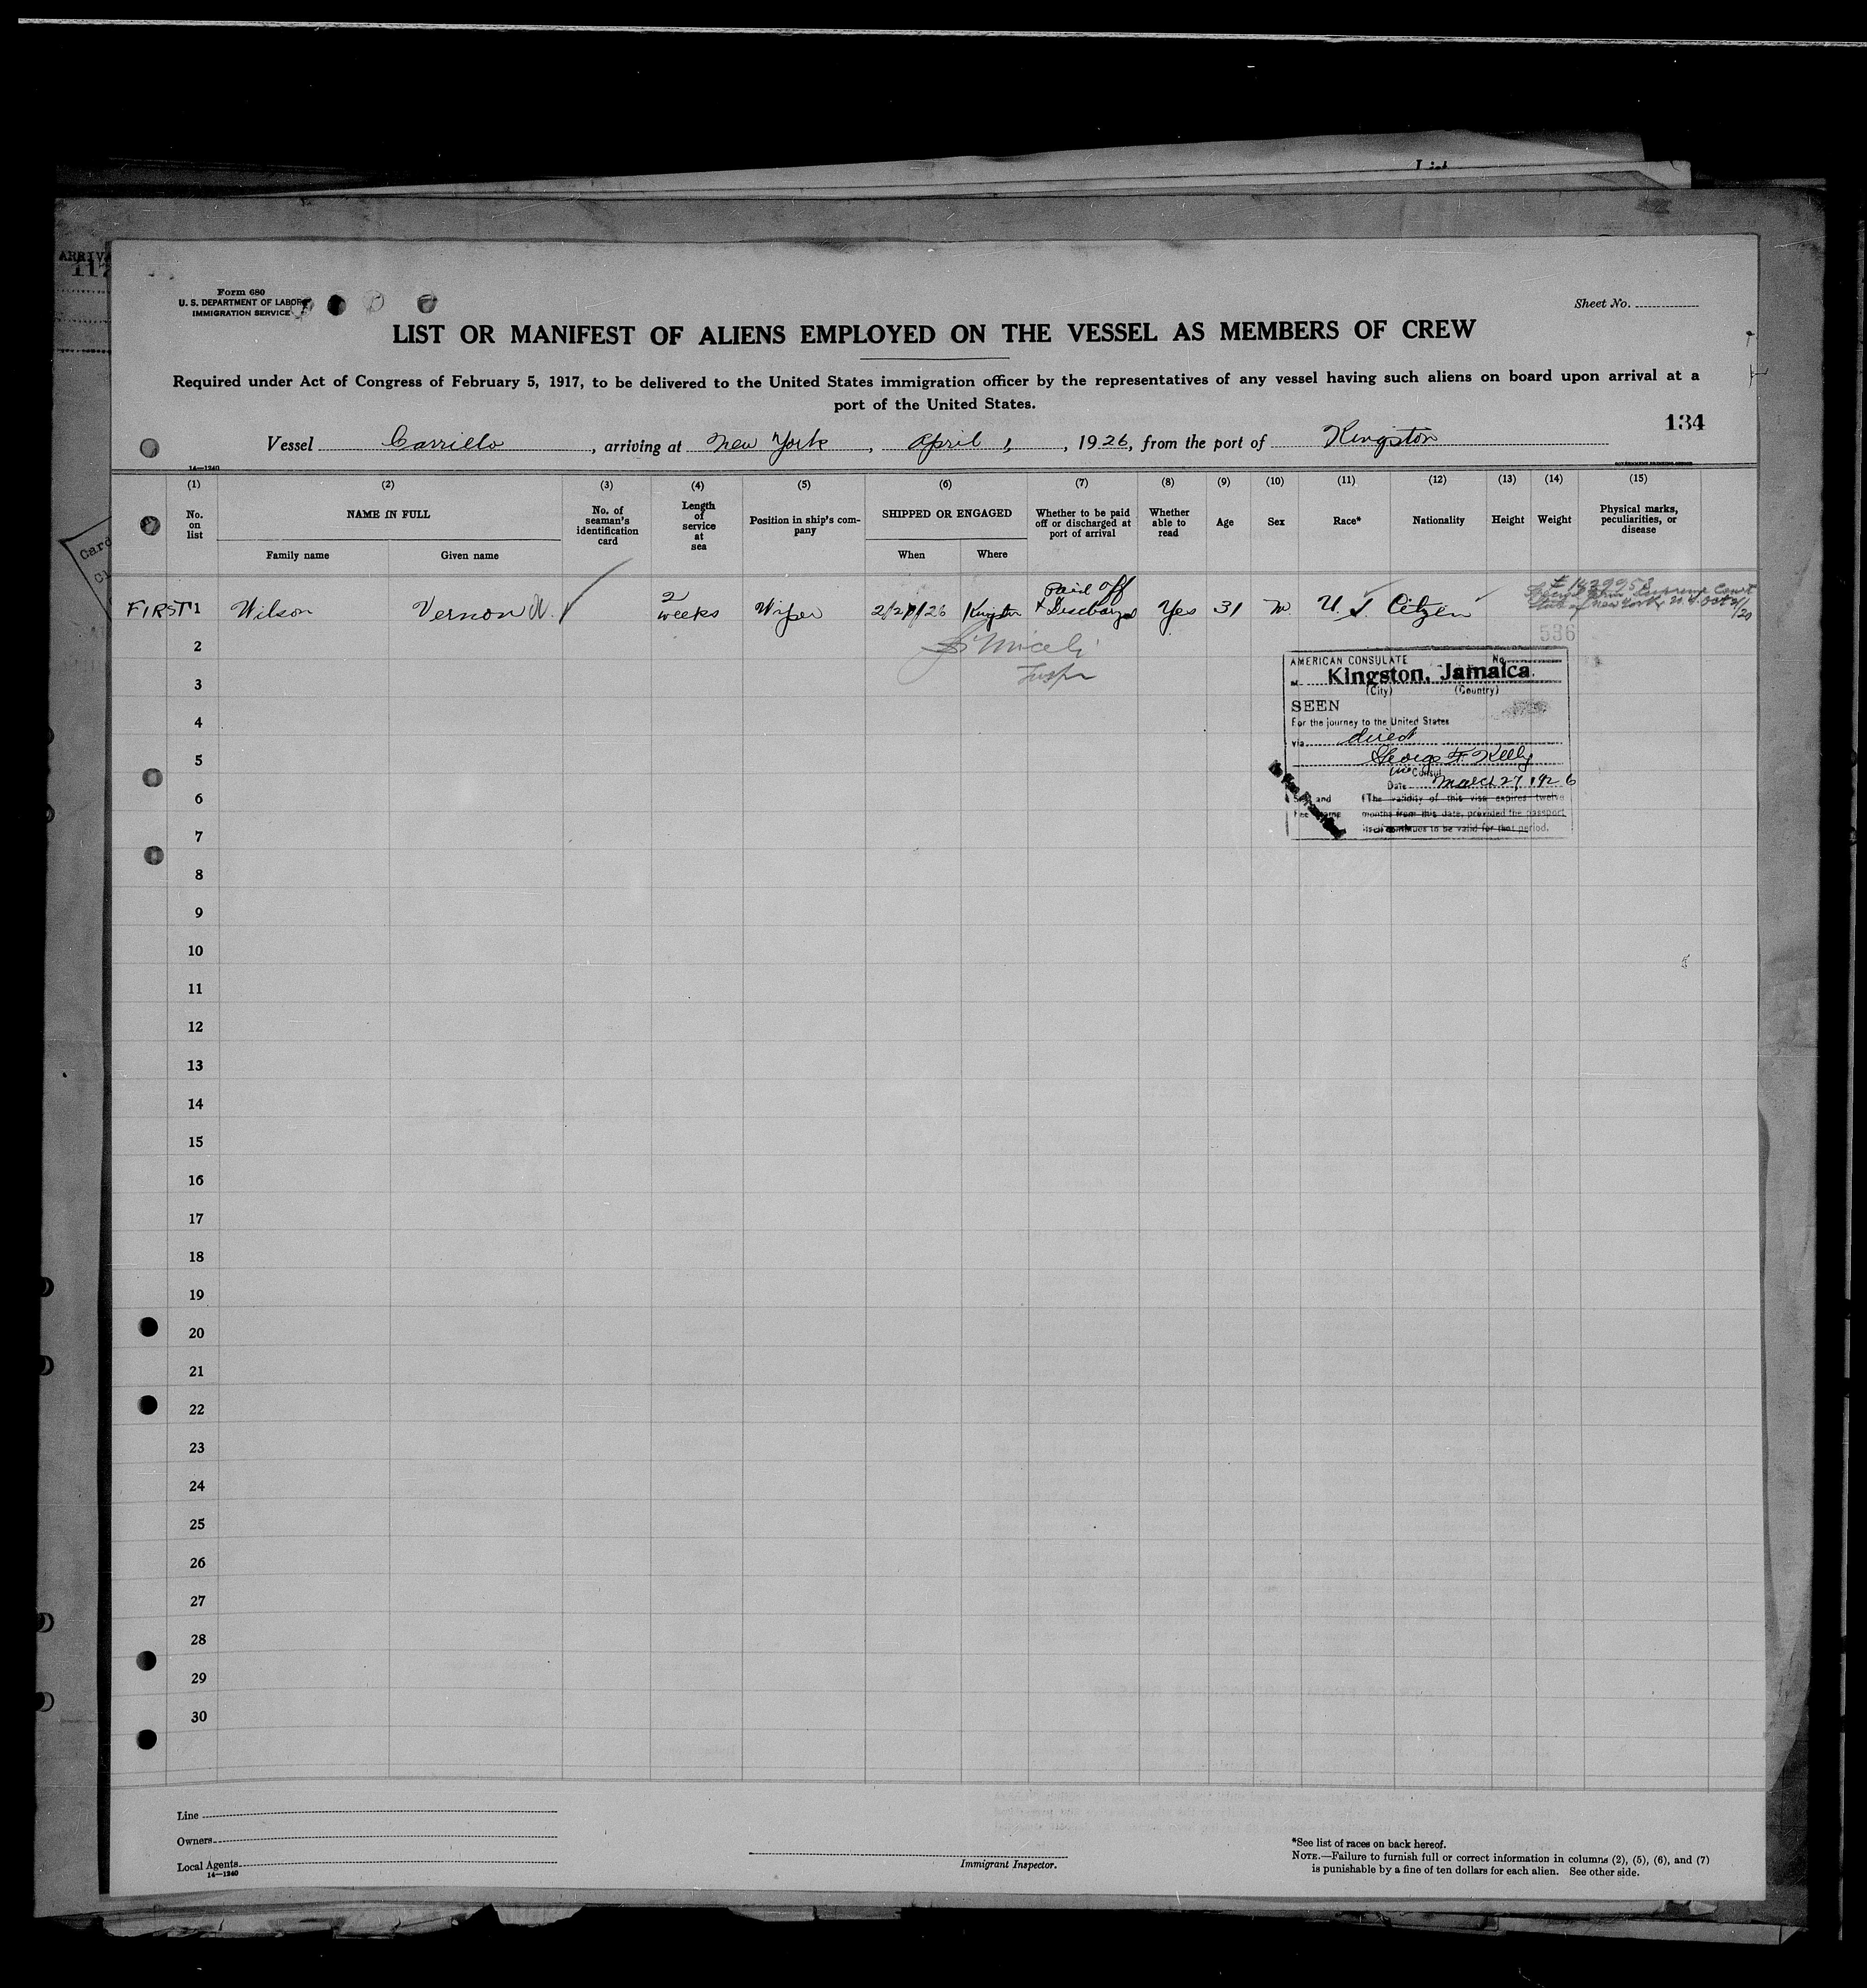 List
ARRIVA
117
Card
Form 680
U. S. DEPARTMENT OF LABOR
IMMIGRATION SERVICE
Sheet No.
LIST OR MANIFEST OF ALIENS EMPLOYED ON THE VESSEL AS MEMBERS OF CREW
Required under Act of Congress of February 5, 1917, to be delivered to the United States immigration officer by the representatives of any vessel having such aliens on board upon arrival at a
port of the United States.
134
Vessel Carrillo, arriving at New York, April 1, 1926, from the port of Kingston
14—1240
GOVERNMENT PRINTING OFFICE
(1) (2) (3) (4) (5) (6) (7) (8) (9) (10) (11) (12) (13) (14) (15)
No. on list
NAME IN FULL
Family name
Given name
No. of seaman's identification card
Length of service at sea
Position in ship's company
SHIPPED OR ENGAGED
When
Where
Whether to be paid off or discharged at port of arrival
Whether able to read
Age
Sex
Race*
Nationality
Height
Weight
Physical marks, peculiarities, or disease
FIRST 1 Wilson Vernon N. 2 weeks Wiper 2/27/26 Kingston Paid off & Discharged Yes 31 M. U. S. Citizen
# 1429953
Supreme Court
State of New York, N.Y. Oct
536
AMERICAN CONSULATE No.
at Kingston, Jamaica.
(City) (Country)
SEEN
For the journey to the United States
via direct
George F. Kelly
Vice Consul
Date March 27, 1926
Seal and Fee Stamp
(The validity of this visa expires twelve
months from this date, provided the passport
itself continues to be valid for that period.
2
3
4
5
6
7
8
9
10
11
12
13
14
15
16
17
18
19
20
21
22
23
24
25
26
27
28
29
30
Line
Owners
Local Agents
14—1240
Immigrant Inspector.
*See list of races on back hereof.
NOTE.—Failure to furnish full or correct information in columns (2), (5), (6), and (7)
is punishable by a fine of ten dollars for each alien. See other side.